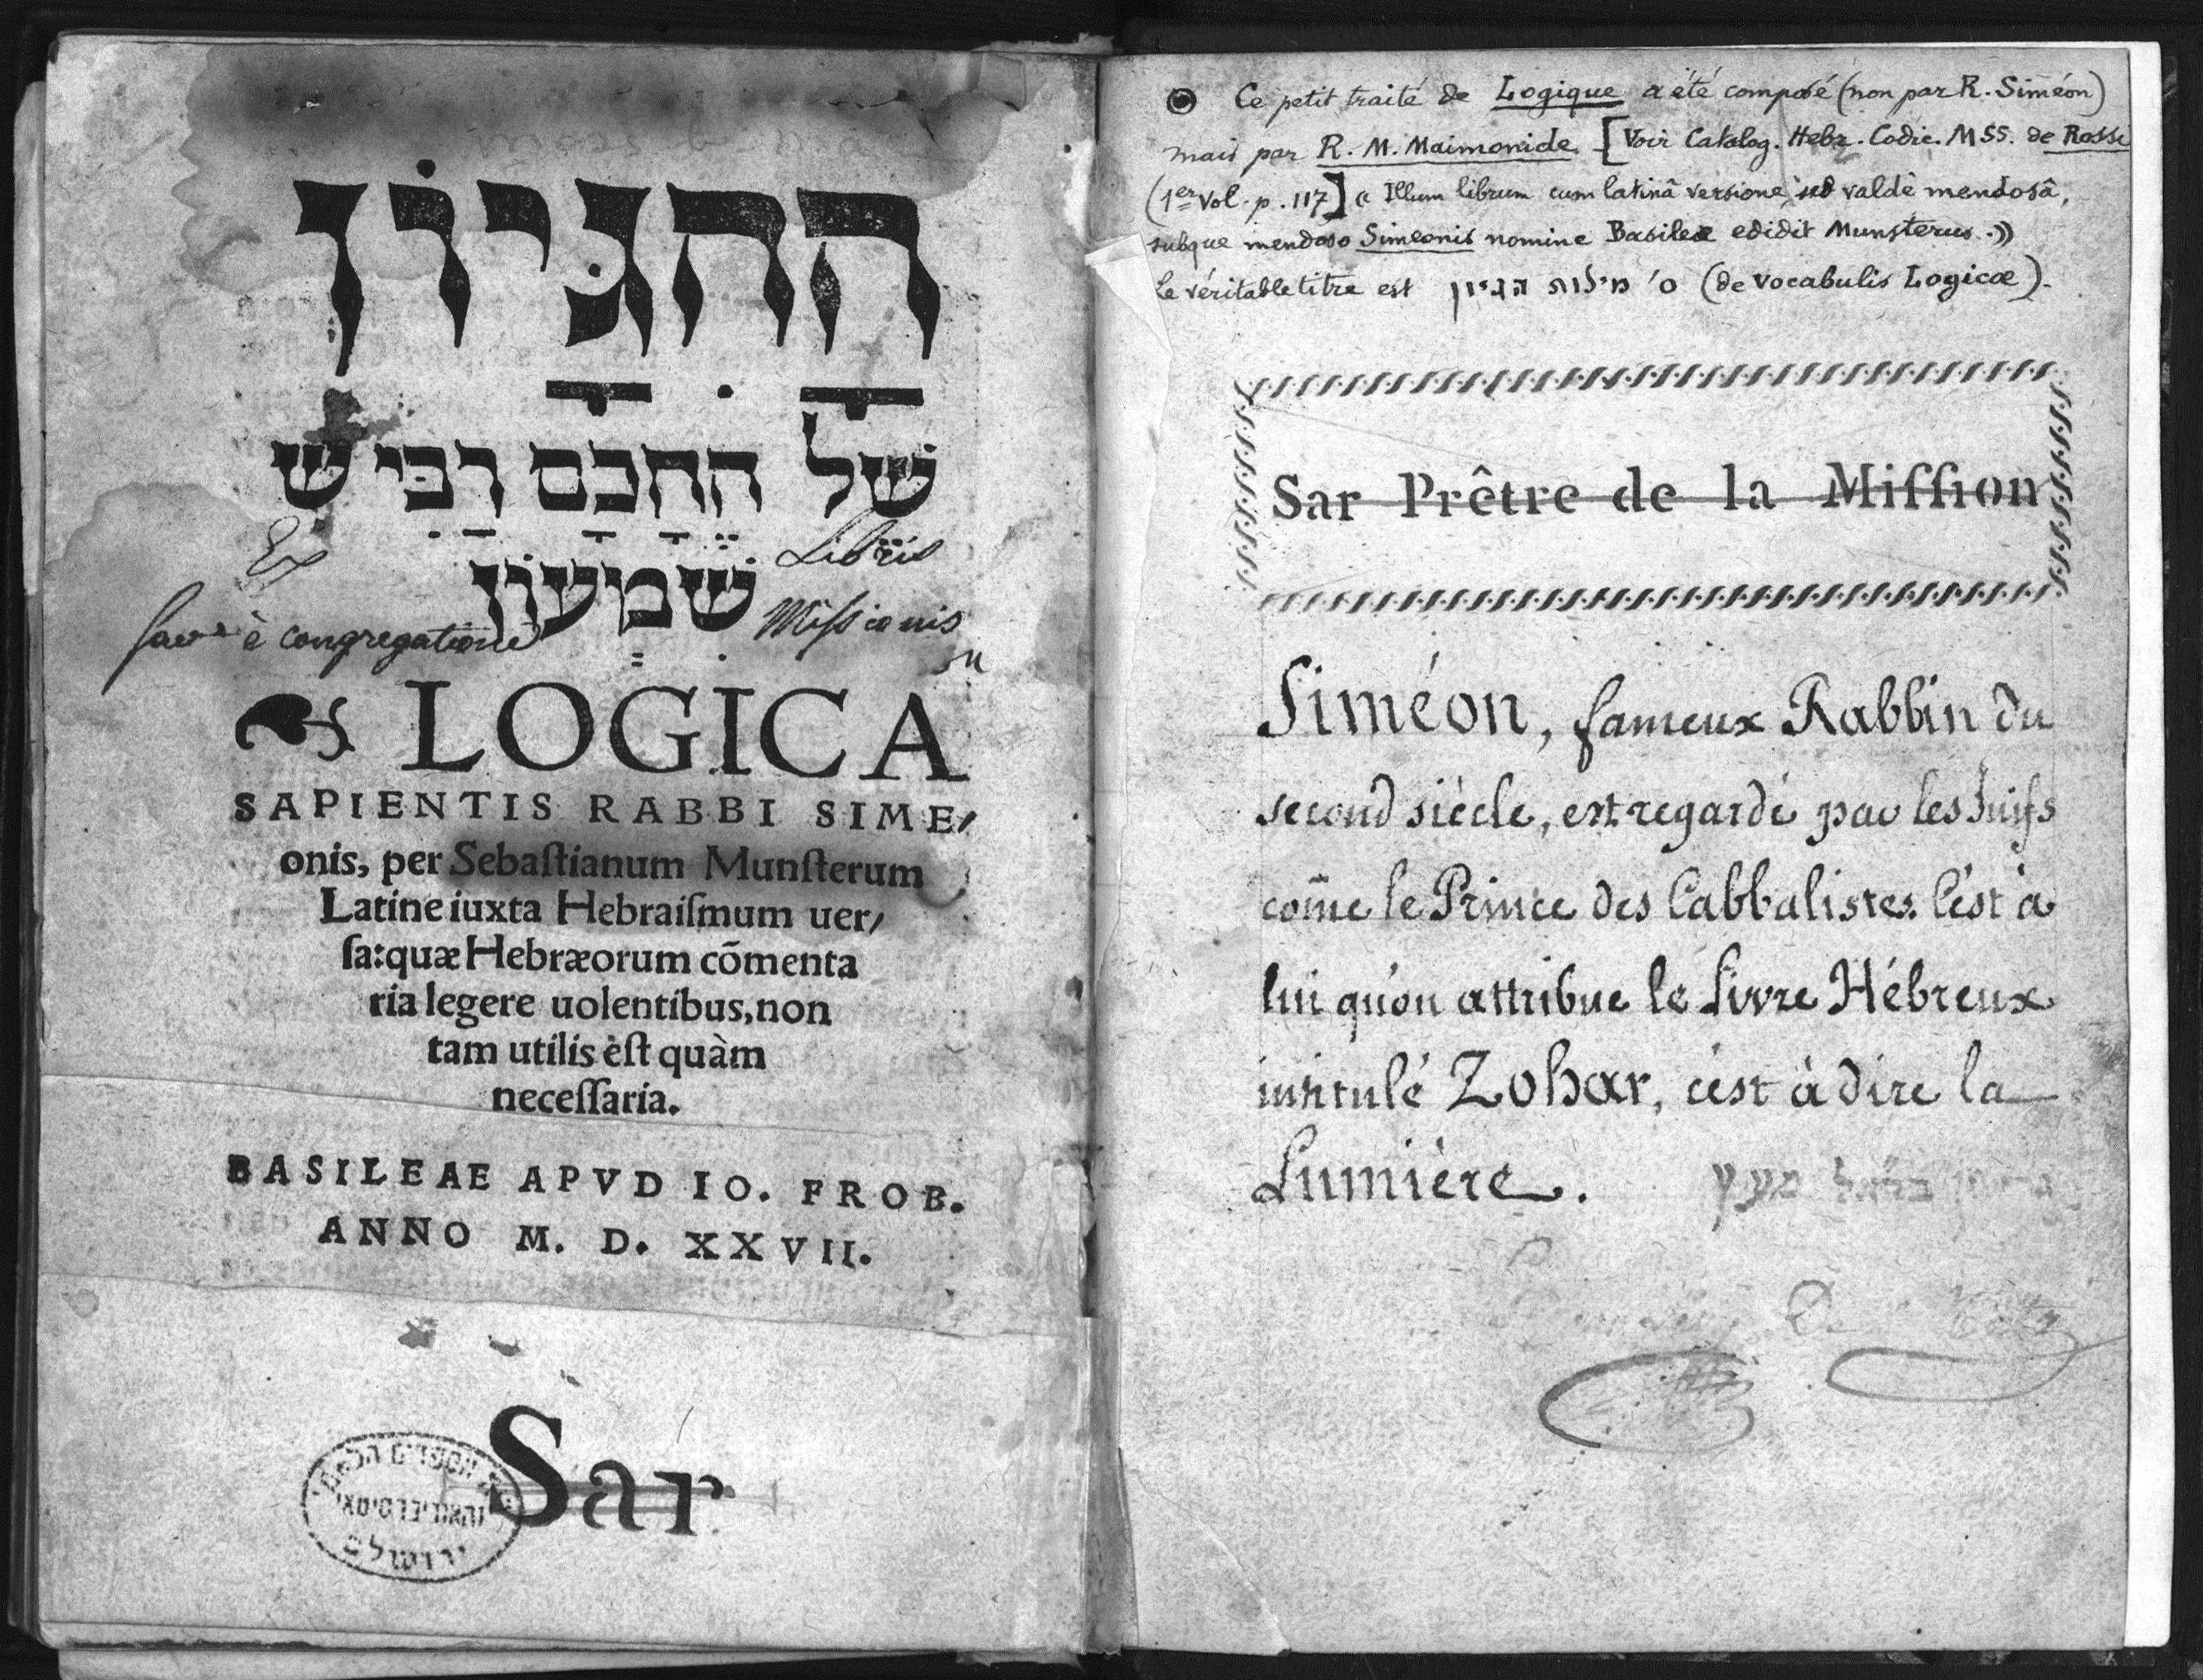 הַהִגָּיוֹן
שֶׁל הֶחָכָם רַבִּי ש
שִׁמְעוֹן
Ex Libris
congregatione Missionis
LOGICA
SAPIENTIS RABBI SIME/
onis, per Sebaſtianum Munſterum
Latine iuxta Hebraiſmum uer/
ſa: quæ Hebræorum cõmenta
ria legere uolentibus, non
tam utilis èſt quàm
neceſſaria.
BASILEAE APVD IO. FROB.
ANNO M. D. XXVII.
Sar
ירושלם
Ce petit traité de Logique a été composé (non par R. Siméon)
mais par R. M. Maimonide. [Voir Catalog. Hebr. Codic. MSS. de Rossi
(1er vol. p. 117] « Illum librum cum latinâ versione, sed valdè mendosâ,
subque mendoso Simeonis nomine Basileæ edidit Munsterus. »
Le véritable titre est ס' מילות הגיון (de vocabulis Logicæ).
Sar Prêtre de la Miſſion
Siméon, fameux Rabbin du
second siécle, est regardé par les Juifs
com̄e le Prince des Cabbalistes. C'est à
lui qu'on attribue le livre Hébreux
intitulé Zohar, c'est à dire la
Lumière.